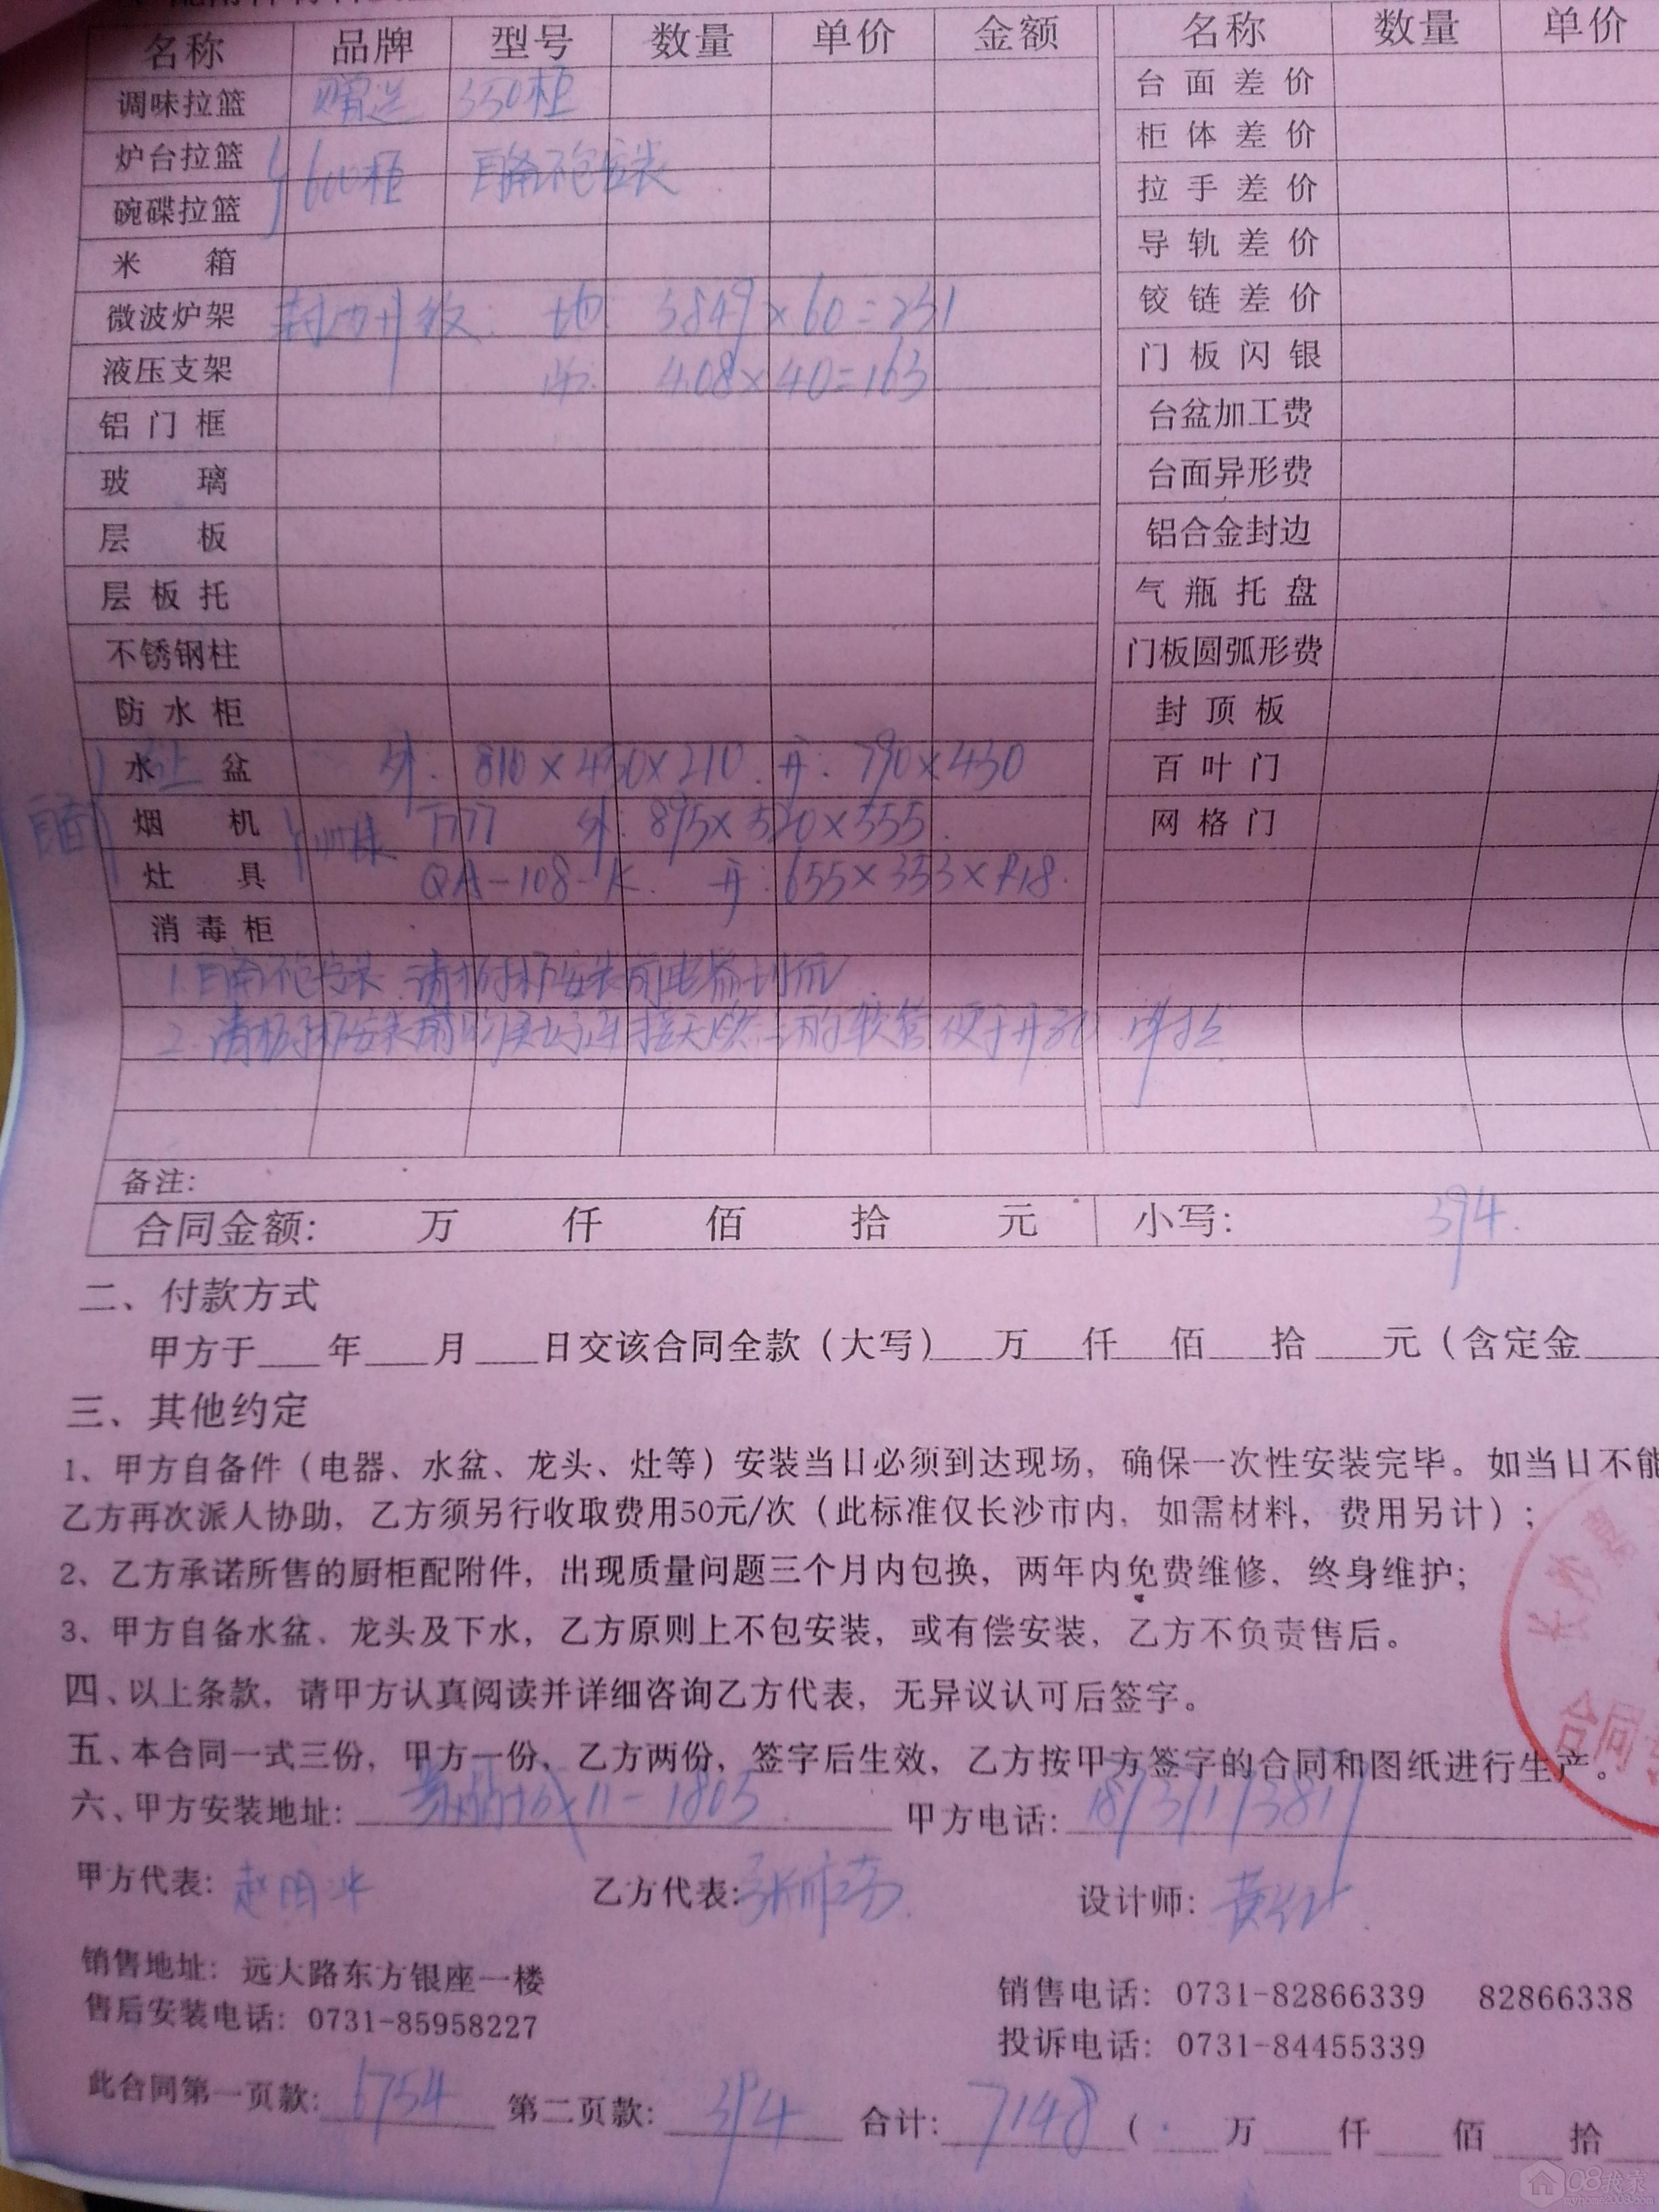 名称 品牌 型号 数量 单价 金额 名称 数量 单价
调味拉篮 赠送 350柜 台面差价
炉台拉篮 600柜 自备不包安装 柜体差价
碗碟拉篮 拉手差价
米箱 导轨差价
微波炉架 升级: 地: 3.849×60=231 铰链差价
液压支架 4.08×40=163 门板闪银
铝门框 台盆加工费
玻璃 台面异形费
层板 铝合金封边
层板托 气瓶托盘
不锈钢柱 门板圆弧形费
防水柜 封顶板
水盆 外: 810×450×210. 开: 790×430 百叶门
自备 烟机 外: 895×520×555. 网格门
灶具 QA-108-K. 开: 655×353×R18.
消毒柜
1. 自备不包安装. 请
2. 请
备注:
合同金额: 万 仟 佰 拾 元 小写: 394.
二、付款方式
甲方于___年___月___日交该合同全款（大写）___万___仟___佰___拾___元（含定金___
三、其他约定
1、甲方自备件（电器、水盆、龙头、灶等）安装当日必须到达现场，确保一次性安装完毕。如当日不能
乙方再次派人协助，乙方须另行收取费用50元/次（此标准仅长沙市内，如需材料，费用另计）；
2、乙方承诺所售的厨柜配附件，出现质量问题三个月内包换，两年内免费维修，终身维护；
3、甲方自备水盆、龙头及下水，乙方原则上不包安装，或有偿安装，乙方不负责售后。
四、以上条款，请甲方认真阅读并详细咨询乙方代表，无异议认可后签字。
五、本合同一式三份，甲方一份、乙方两份，签字后生效，乙方按甲方签字的合同和图纸进行生产。
六、甲方安装地址: 11-1805 甲方电话:
甲方代表: 乙方代表: 设计师:
销售地址: 远大路东方银座一楼 销售电话: 0731-82866339 82866338
售后安装电话: 0731-85958227 投诉电话: 0731-84455339
此合同第一页款: 6754 第二页款: 394 合计: 7148 ( 万 仟 佰 拾
长沙
合同
08我家